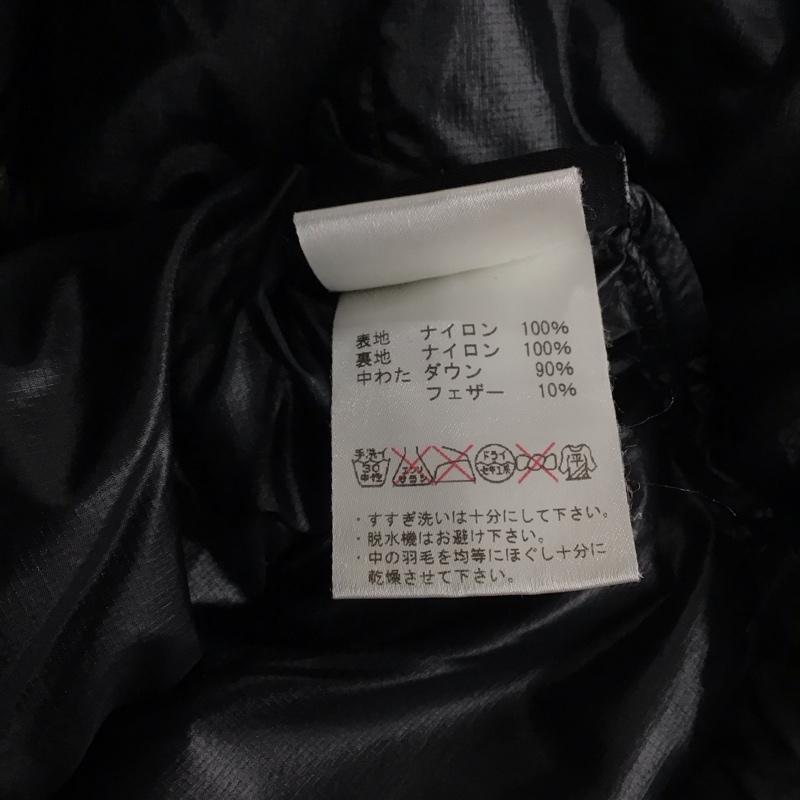 表地 ナイロン 100%
裏地 ナイロン 100%
中わた ダウン 90%
フェザー 10%
手洗イ 30 中性 エンソサラシ ドライ セキユ系 平
・すすぎ洗いは十分にして下さい。
・脱水機はお避け下さい。
・中の羽毛を均等にほぐし十分に
乾燥させて下さい。